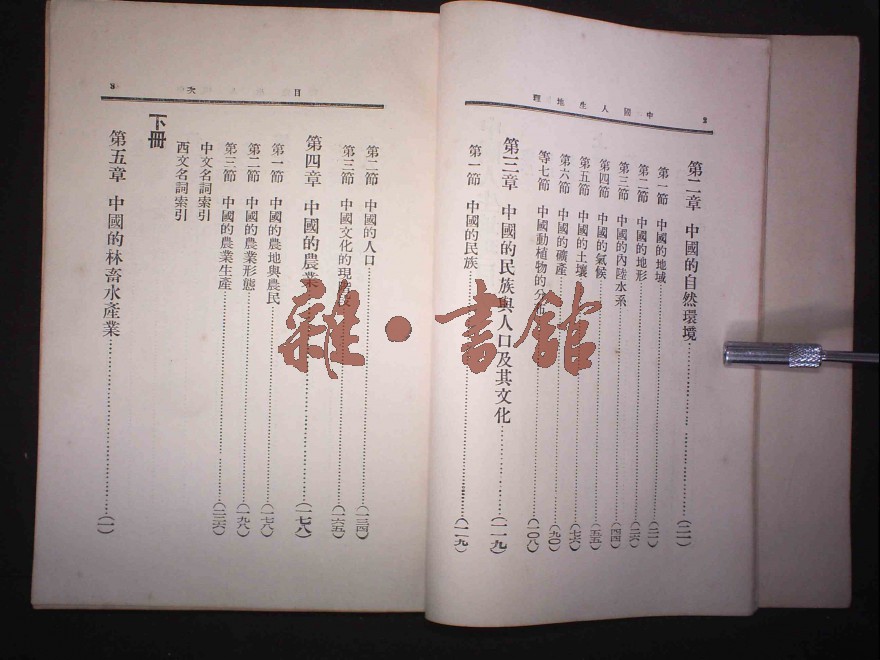 中國人生地理
2
第二章 中國的自然環境……(二一)
第一節 中國的地域……(二一)
第二節 中國的地形……(二六)
第三節 中國的內陸水系……(四四)
第四節 中國的氣候……(五五)
第五節 中國的土壤……(七六)
第六節 中國的礦產……(九〇)
等七節 中國動植物的分布……(一〇八)
第三章 中國的民族與人口及其文化……(一一九)
第一節 中國的民族……(一一九)
目次
3
第二節 中國的人口……(一三四)
第三節 中國文化的現階段……(一六五)
第四章 中國的農業……(一七八)
第一節 中國的農地與農民……(一七八)
第二節 中國的農業形態……(一九八)
第三節 中國的農業生產……(二三六)
中文名詞索引
西文名詞索引
下冊
第五章 中國的林畜水產業……(一)
雜·書館